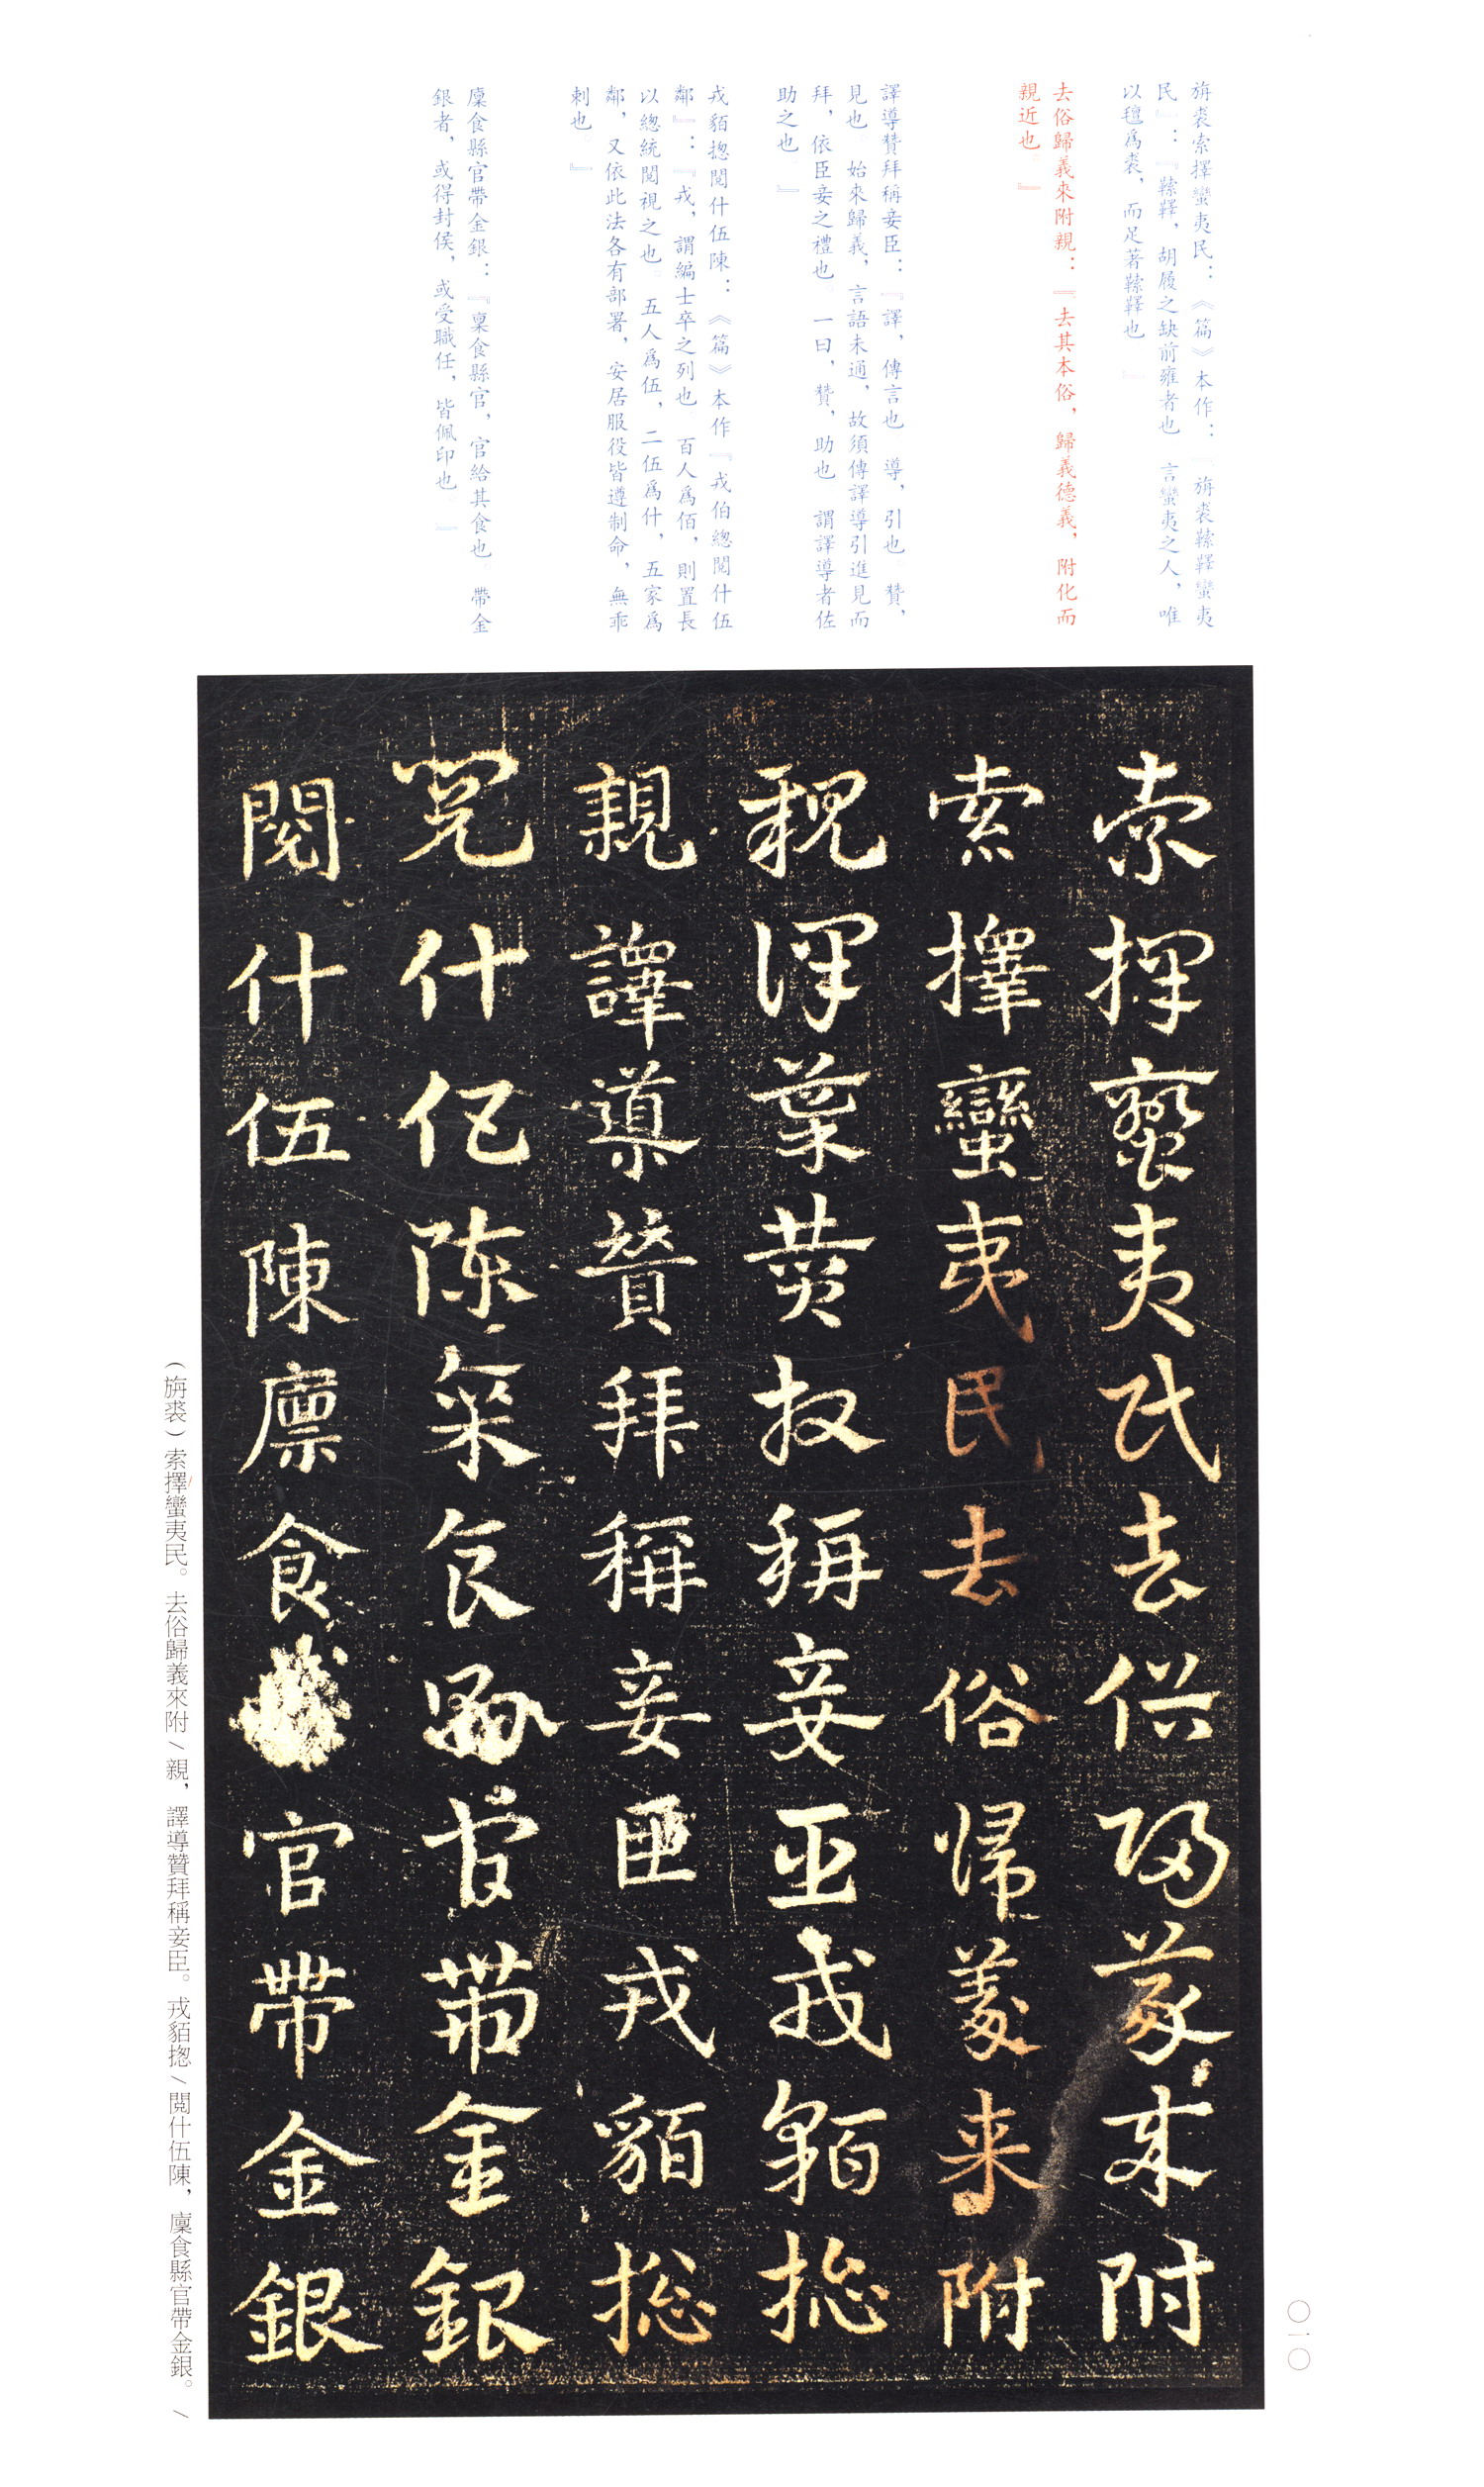 旃裘索擇蠻夷民：《篇》本作：『旃裘䩡鞸蠻夷
民』：『䩡鞸，胡履之缺前雍者也。言蠻夷之人，唯
以氊爲裘，而足著䩡鞸也。』
去俗歸義來附親：『去其本俗，歸義德義，附化而
親近也。』
譯導贊拜稱妾臣：『譯，傳言也。導，引也。贊，
見也。始來歸義，言語未通，故須傳譯導引進見而
拜，依臣妾之禮也。一曰，贊，助也。謂譯導者佐
助之也。』
戎貊揔閲什伍陳：《篇》本作『戎伯總閲什伍
鄰』：『戎，謂編士卒之列也。百人爲佰，則置長
以總統閲視之也。五人爲伍，二伍爲什，五家爲
鄰，又依此法各有部署，安居服役皆遵制命，無乖
剌也。』
廩食縣官帶金銀：『稟食縣官，官給其食也。帶金
銀者，或得封侯，或受職任，皆佩印也。』
索擇蠻夷民去俗歸義来附
索擇蠻夷民去俗歸義来附
親譯導贊拜稱妾臣戎貊揔
親譯導贊拜稱妾臣戎貊揔
閲什伍陳廩食縣官帶金銀
閲什伍陳廩食官帶金銀
（旃裘）索擇蠻夷民。去俗歸義來附/親，譯導贊拜稱妾臣。戎貊揔/閲什伍陳，廩食縣官帶金銀。/
〇一〇